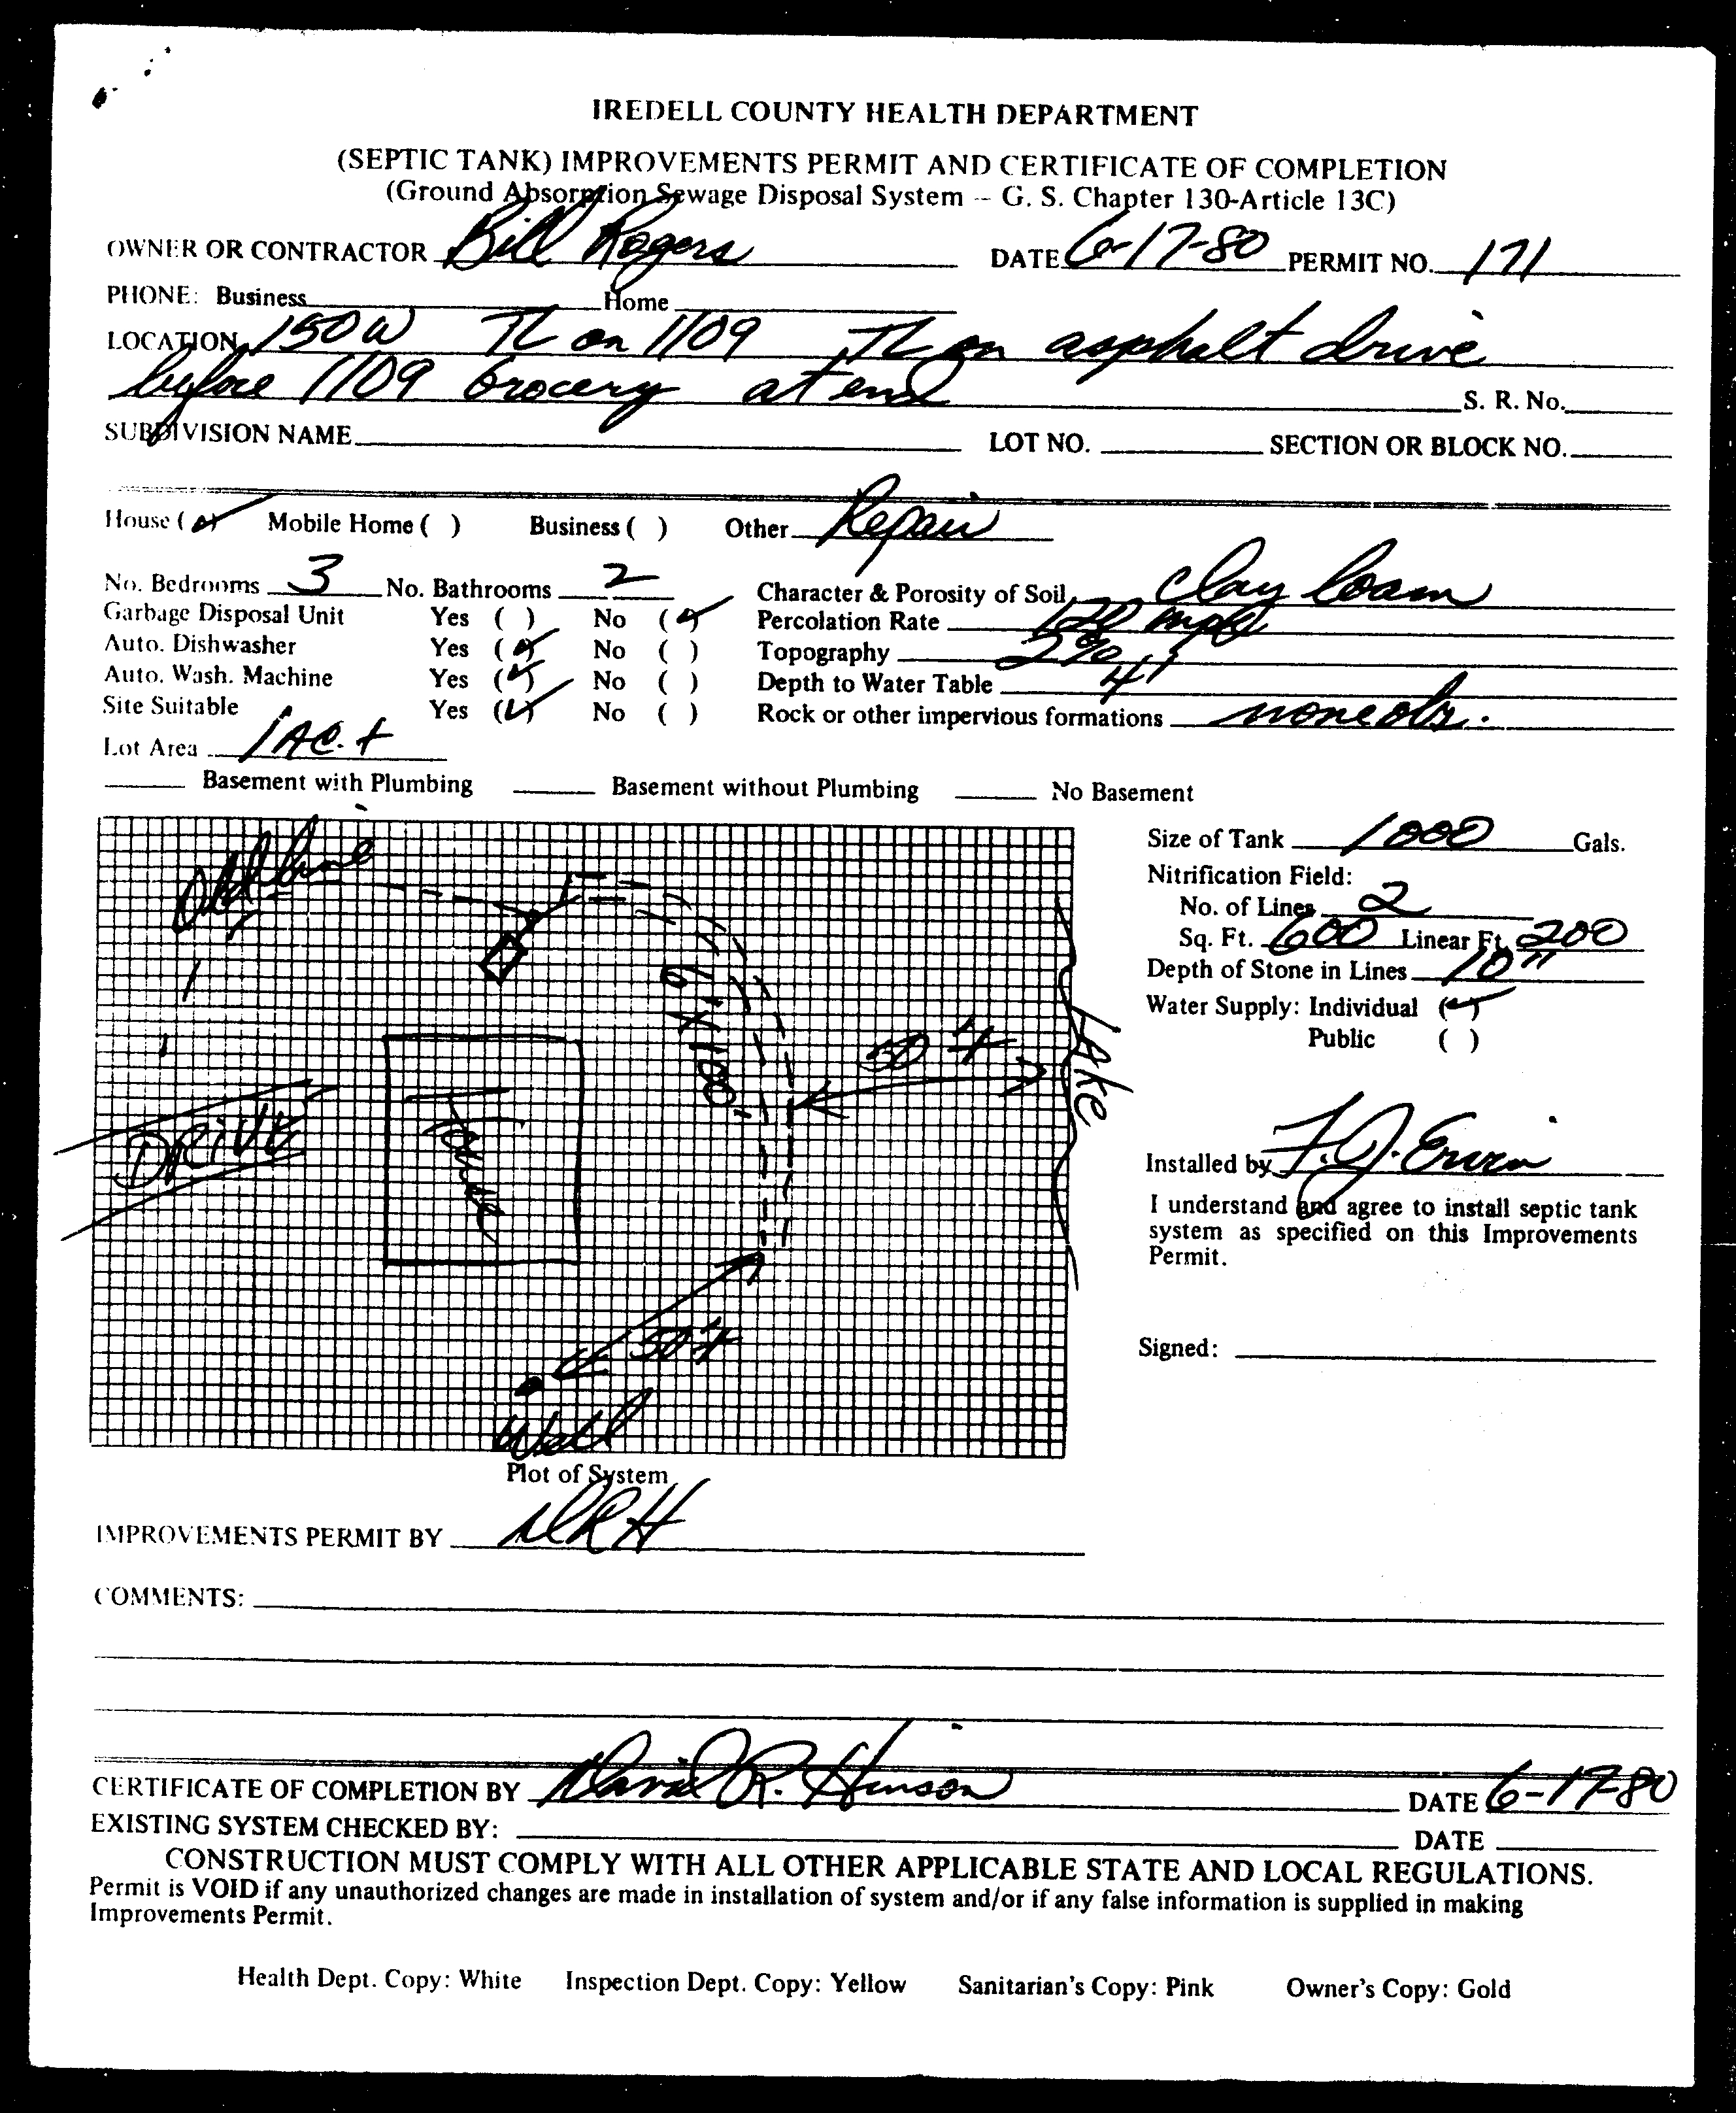 IREDELL COUNTY HEALTH DEPARTMENT
(SEPTIC TANK) IMPROVEMENTS PERMIT AND CERTIFICATE OF COMPLETION
(Ground Absorption Sewage Disposal System -- G. S. Chapter 130-Article 13C)
OWNER OR CONTRACTOR Bill Rogers DATE 6-17-80 PERMIT NO. 171
PHONE: Business Home
LOCATION 150 W TL on 1109 TL on asphalt drive
before 1109 Grocery at end S. R. No.
SUBDIVISION NAME LOT NO. SECTION OR BLOCK NO.
House (✓) Mobile Home ( ) Business ( ) Other Repair
No. Bedrooms 3 No. Bathrooms 2 Character & Porosity of Soil clay loam
Garbage Disposal Unit Yes ( ) No (✓) Percolation Rate
Auto. Dishwasher Yes (✓) No ( ) Topography 2%
Auto. Wash. Machine Yes (✓) No ( ) Depth to Water Table 4'
Site Suitable Yes (✓) No ( ) Rock or other impervious formations none obs.
Lot Area 1 AC. +
Basement with Plumbing Basement without Plumbing No Basement
Size of Tank 1000 Gals.
Nitrification Field:
No. of Lines 2
Sq. Ft. 600 Linear Ft. 200
Depth of Stone in Lines 10"
Water Supply: Individual (✓)
Public ( )
Installed by F. J. Ervin
I understand and agree to install septic tank
system as specified on this Improvements
Permit.
Signed:
Old line
DRIVE
House
50 +
Lake
50 +
Well
Plot of System
IMPROVEMENTS PERMIT BY DRH
COMMENTS:
CERTIFICATE OF COMPLETION BY David R. Hinson DATE 6-17-80
EXISTING SYSTEM CHECKED BY: DATE
CONSTRUCTION MUST COMPLY WITH ALL OTHER APPLICABLE STATE AND LOCAL REGULATIONS.
Permit is VOID if any unauthorized changes are made in installation of system and/or if any false information is supplied in making
Improvements Permit.
Health Dept. Copy: White Inspection Dept. Copy: Yellow Sanitarian's Copy: Pink Owner's Copy: Gold